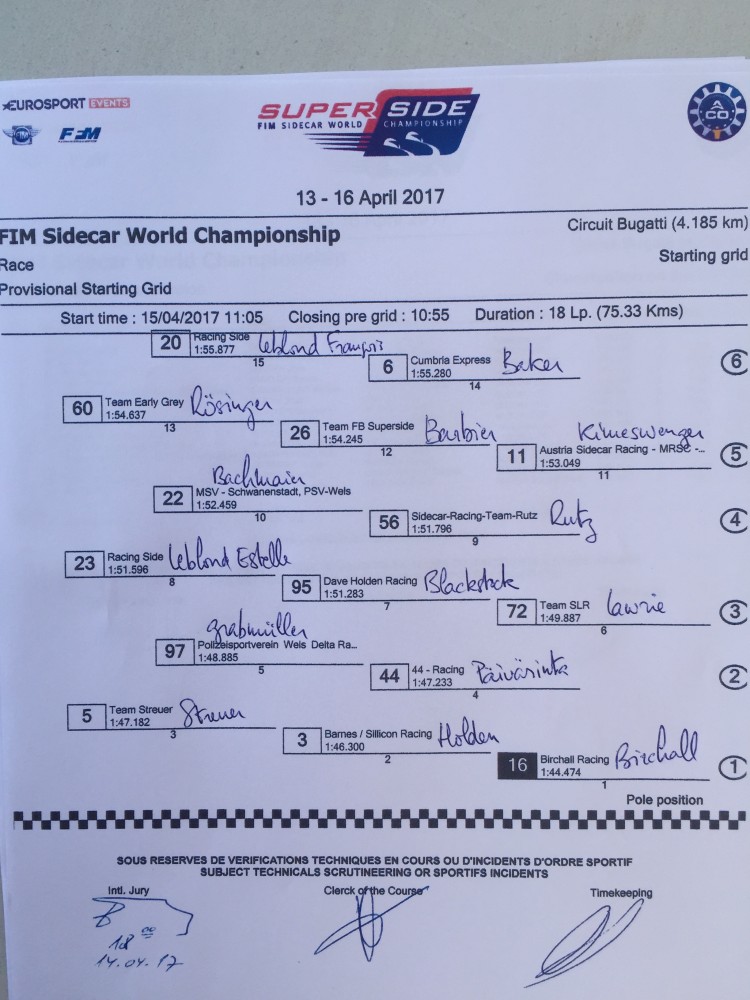 EUROSPORT EVENTS
FIM
SUPERSIDE
FIM SIDECAR WORLD CHAMPIONSHIP
ACO
13 - 16 April 2017
FIM Sidecar World Championship
Circuit Bugatti (4.185 km)
Race
Starting grid
Provisional Starting Grid
Start time : 15/04/2017 11:05 Closing pre grid : 10:55 Duration : 18 Lp. (75.33 Kms)
20 Racing Side Leblond François
1:55.877
15
6 Cumbria Express Baker
1:55.280
14
6
60 Team Early Grey Rösinger
1:54.637
13
26 Team FB Superside Barbier
1:54.245
12
Kimeswenger
11 Austria Sidecar Racing - MRSC -...
1:53.049
11
5
Bachmaier
22 MSV - Schwanenstadt, PSV-Wels
1:52.459
10
56 Sidecar-Racing-Team-Rutz Rutz
1:51.796
9
4
23 Racing Side Leblond Estelle
1:51.596
8
95 Dave Holden Racing Blackstock
1:51.283
7
72 Team SLR Lawrie
1:49.887
6
3
Grabmüller
97 Polizeisportverein Wels Delta Ra...
1:48.885
5
44 44 - Racing Päivärinta
1:47.233
4
2
5 Team Streuer Streuer
1:47.182
3
3 Barnes / Sillicon Racing Holden
1:46.300
2
16 Birchall Racing Birchall
1:44.474
1
1
Pole position
SOUS RESERVES DE VERIFICATIONS TECHNIQUES EN COURS OU D'INCIDENTS D'ORDRE SPORTIF
SUBJECT TECHNICALS SCRUTINEERING OR SPORTIFS INCIDENTS
Intl. Jury
Clerck of the Course
Timekeeping
18 00
14.04.17